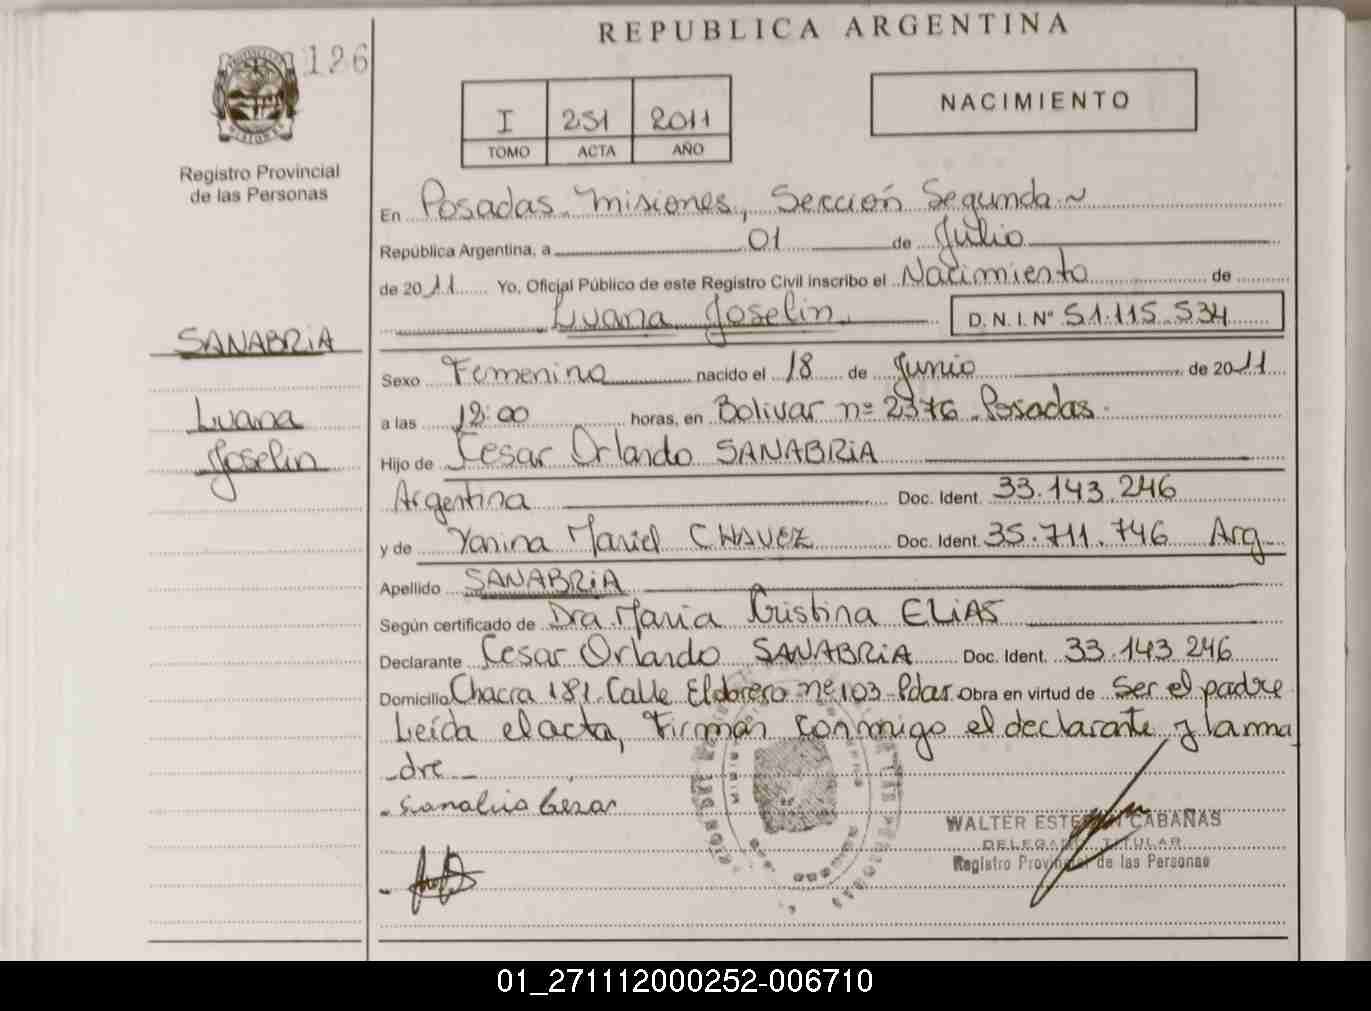 REPUBLICA ARGENTINA
126
I 251 2011
TOMO ACTA AÑO
NACIMIENTO
Registro Provincial
de las Personas
En Posadas. Misiones, Sección Segunda ~
República Argentina, a 01 de Julio
de 2011 Yo, Oficial Público de este Registro Civil inscribo el Nacimiento de
Luana Joselin D.N.I.Nº 51.115.534
SANABRiA
Luana
Joselin
Sexo Femenino nacido el 18 de Junio de 2011
a las 12:00 horas, en Bolivar nº 2376 Posadas.
Hijo de Cesar Orlando SANABRiA
Argentina Doc. Ident. 33.143.246
y de Yanina Mariel CHAVEZ Doc. Ident. 35.711.746 Arg
Apellido SANABRiA
Según certificado de Dra Maria Cristina ELiAS
Declarante Cesar Orlando SANABRiA Doc. Ident. 33.143.246
Domicilio Chacra 181. Calle Eldorero nº 103 - Pdas. Obra en virtud de Ser el padre
Leída el acta, Firman conmigo el declarante y la ma
-dre
- Sanabria Cesar
WALTER CABAÑAS
DELEGADO TITULAR
Registro Provincial de las Personas
01_271112000252-006710